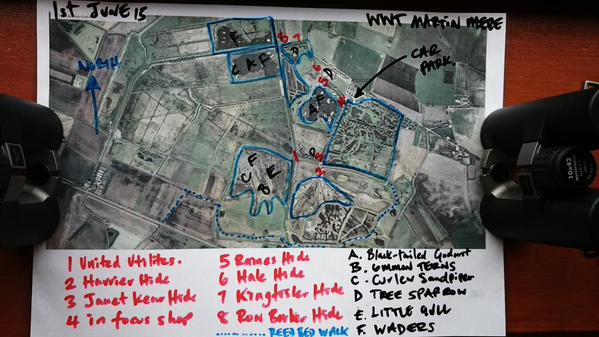 1st JUNE 15
WWT MARTIN MERE
NORTH
CAR
PARK
E
C A F
8 7
D
D
6
5
A F
4
1
2
C F
B E
1 United Utilites.
2 Harrier Hide
3 Janet Kear Hide
4 in focus shop
5 Raines Hide
6 Hale Hide
7 Kingfisher Hide
8 Ron Barker Hide
REED BED WALK
A. Black-tailed Godwit
B. COMMON TERNS
C. Curlew Sandpiper
D TREE SPARROW
E. LITTLE GULL
F. WADERS
10x42